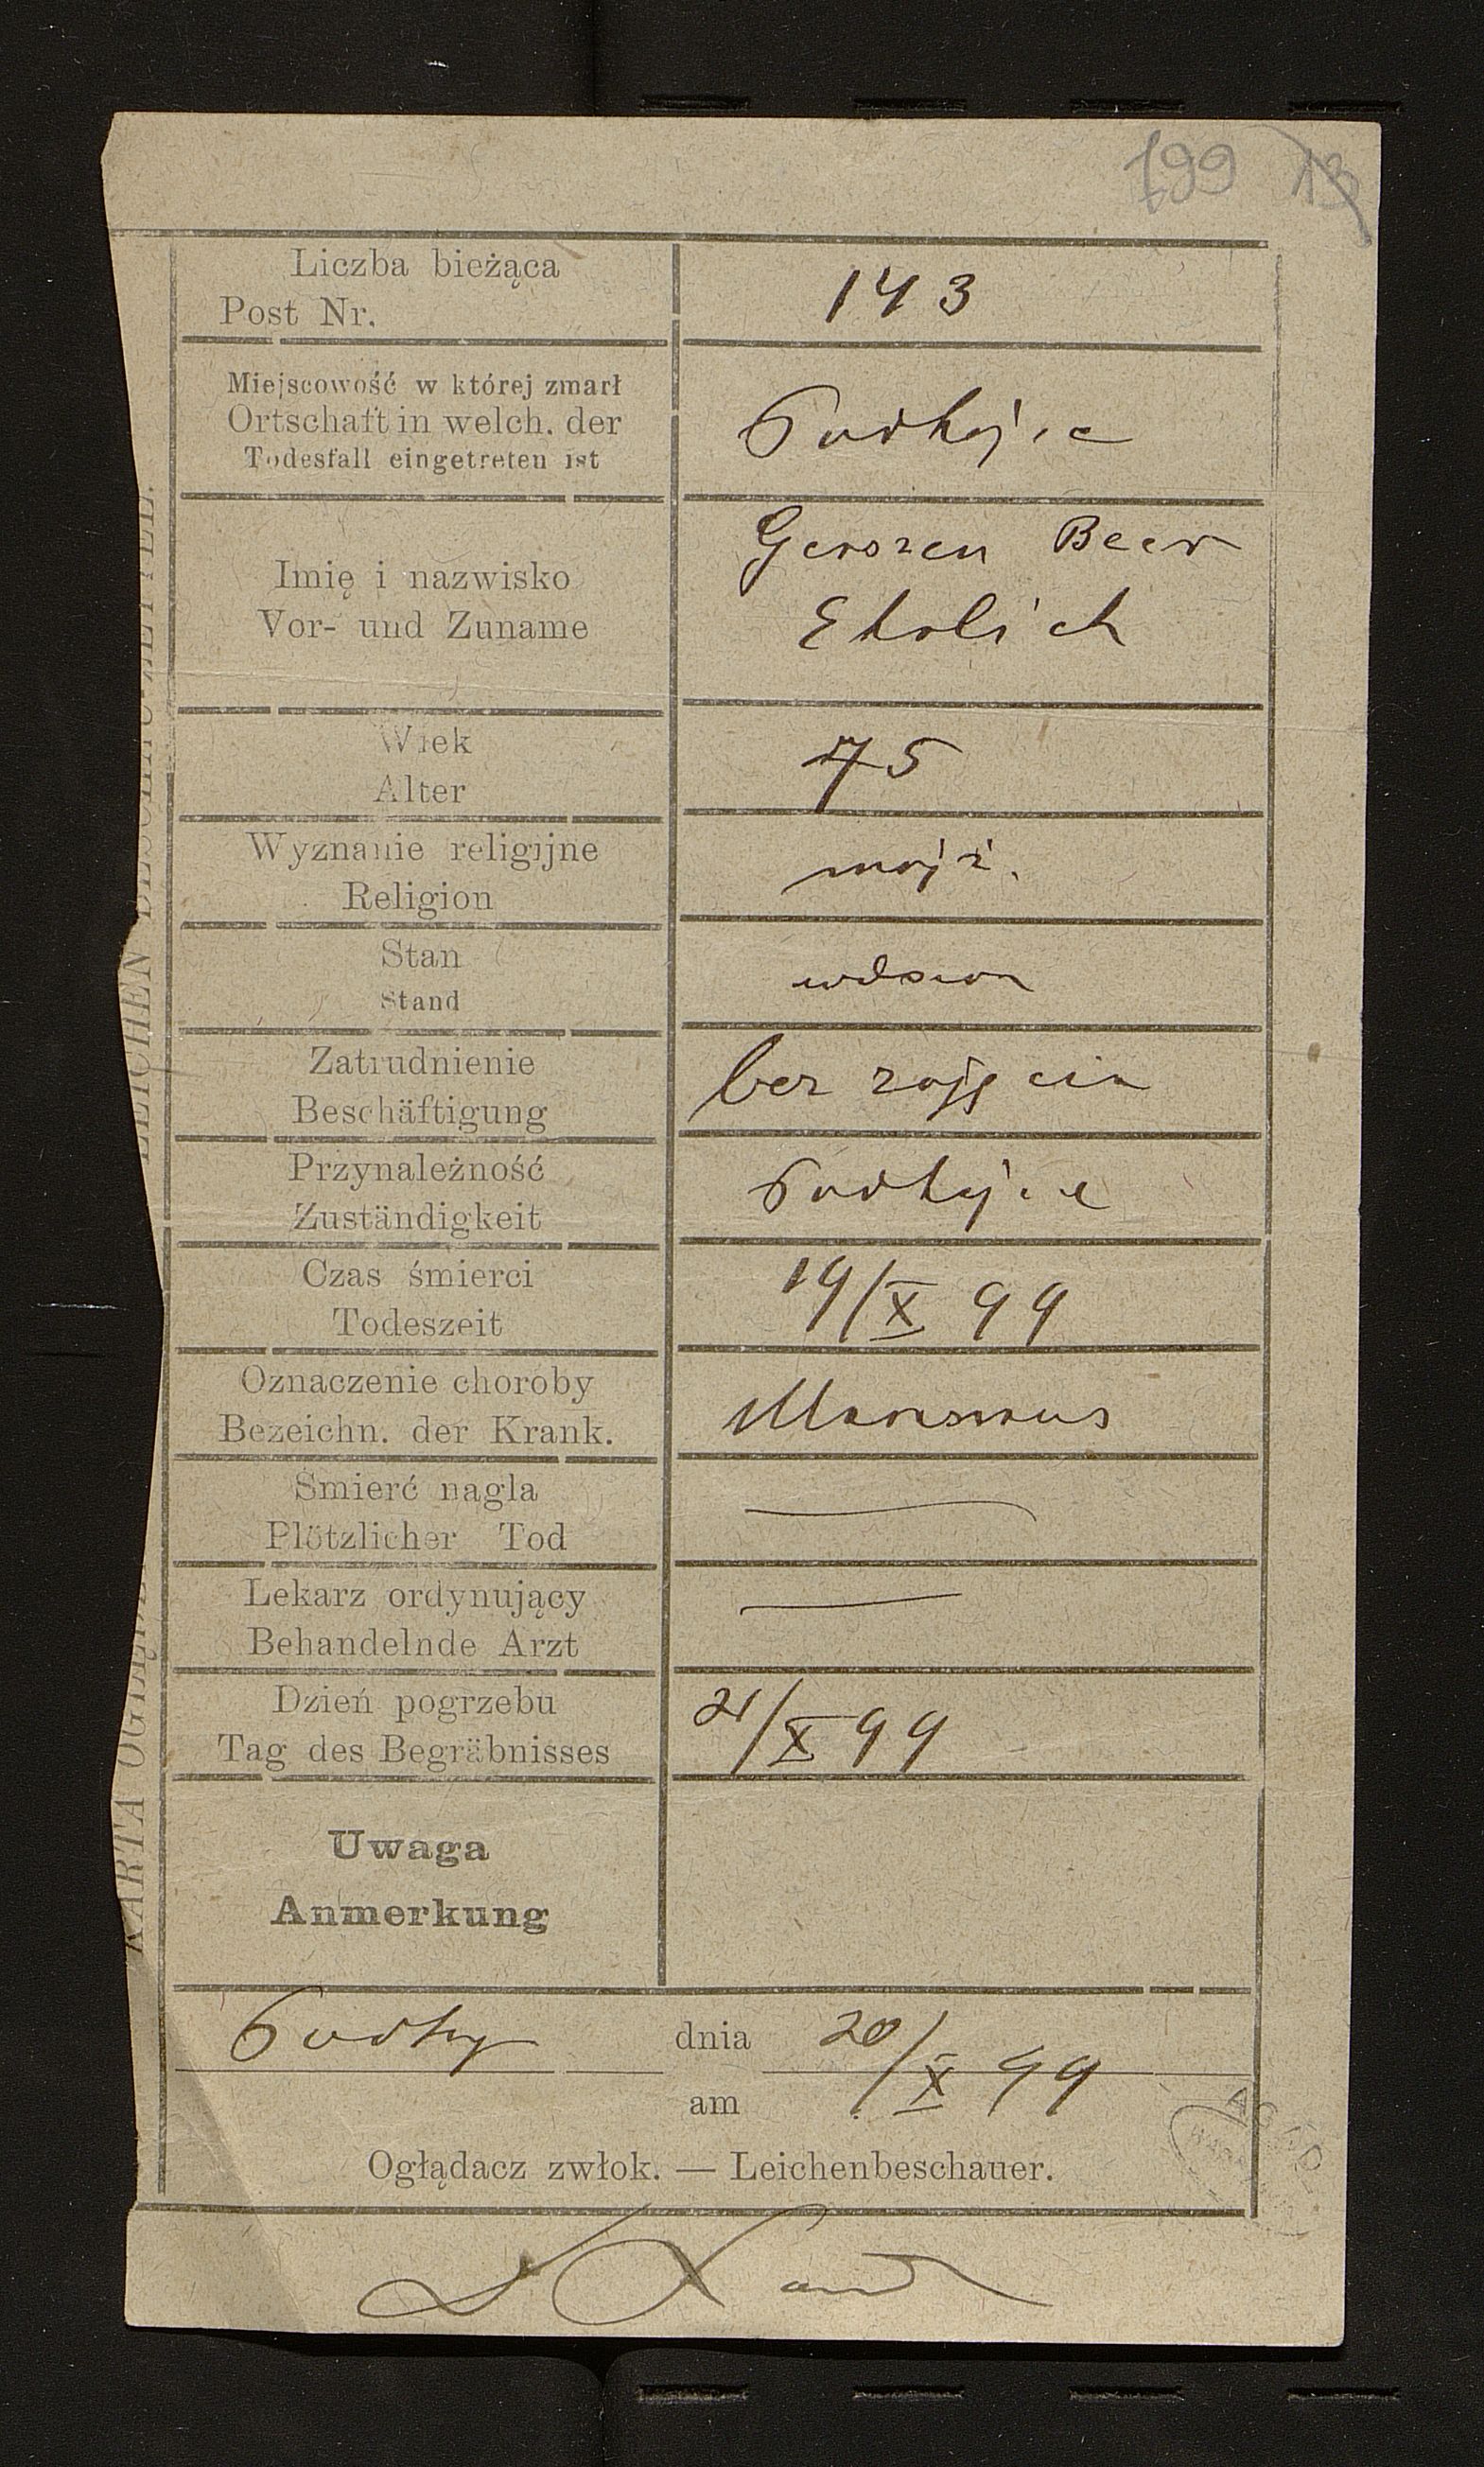 199 13
Liczba bieżąca
Post Nr.
143
Miejscowość w której zmarł
Ortschaft in welch. der
Todesfall eingetreten ist
Podhajce
Imię i nazwisko
Vor- und Zuname
Gerszen Beer
Ehrlich
Wiek
Alter
75
Wyznanie religijne
Religion
mojż.
Stan
Stand
wdowa
Zatrudnienie
Beschäftigung
bez zajęcia
Przynależność
Zuständigkeit
Podhajce
Czas śmierci
Todeszeit
19/X 99
Oznaczenie choroby
Bezeichn. der Krank.
Marasmus
Śmierć nagla
Plötzlicher Tod
Lekarz ordynujący
Behandelnde Arzt
Dzień pogrzebu
Tag des Begräbnisses
21/X 99
Uwaga
Anmerkung
Podhj dnia 20/X 99
am
Oglądacz zwłok. — Leichenbeschauer.
KARTA OGLĘD
LEICHEN BESCHAU-ZETTEL.